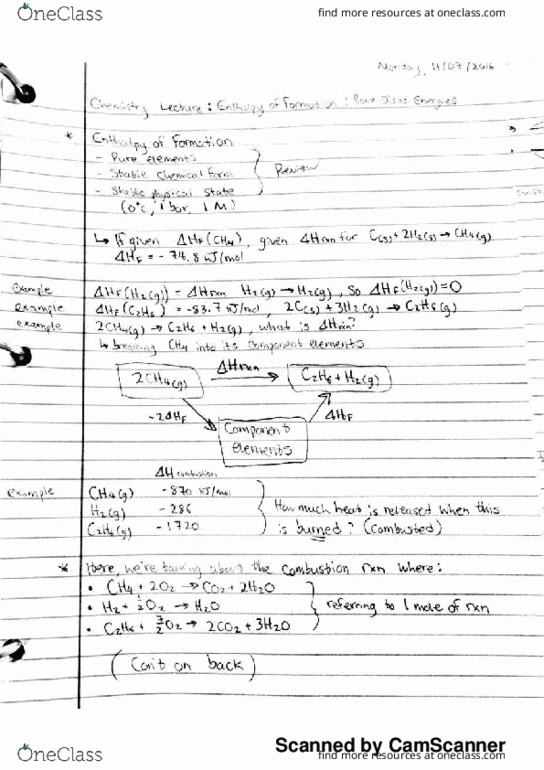 OneClass
find more resources at oneclass.com
Monday, 11/07/2016
Chemistry Lecture: Enthalpy of Formation: Bond Disso. Energies
* Enthalpy of Formation
- Pure elements
- Stable Chemical Form
- Stable physical State
(0°C, 1 bar, 1 M)
Review
↳ If given ΔHF(CH4), given ΔHrxn for C(s)+2H2(g)→CH4(g)
ΔHF = -74.8 kJ/mol
Example ΔHF(H2(g)) = ΔHrxn H2(g) → H2(g), So ΔHF(H2(g))=0
example ΔHF(C2H6) = -83.7 kJ/mol, 2C(s)+3H2(g) → C2H6(g)
example 2CH4(g) → C2H6+H2(g), what is ΔHrxn?
↳ breaking CH4 into its component elements
2CH4(g) ΔHrxn C2H6+H2(g)
-2ΔHF ΔHF
Component
elements
ΔH combustion
example CH4(g) -870 kJ/mol
H2(g) -286
C2H6(g) -1720
How much heat is released when this
is burned? (Combusted)
* Here, we're talking about the combustion rxn where:
• CH4 + 2O2 → CO2 + 2H2O
• H2 + ½O2 → H2O
• C2H6 + 7/2O2 → 2CO2 + 3H2O
referring to 1 mole of rxn
(Con't on back)
Scanned by CamScanner
OneClass
find more resources at oneclass.com